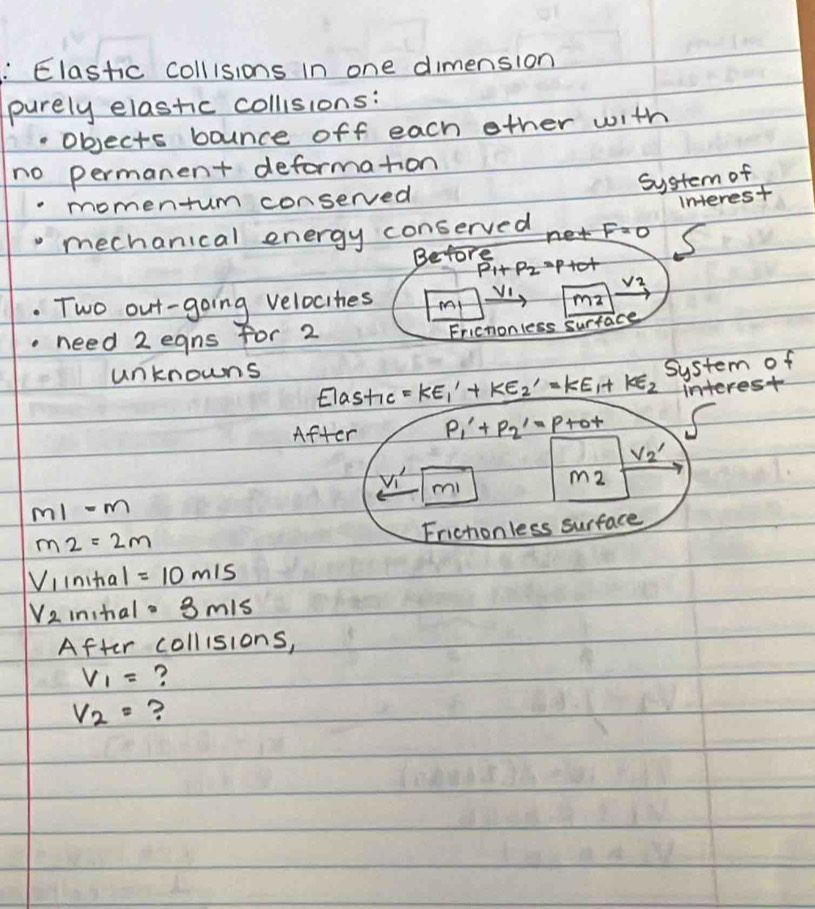 : Elastic collisions in one dimension
purely elastic collisions:
• objects bounce off each other with
no permanent deformation
• momentum conserved
• mechanical energy conserved
net F=0
System of
interest
Before
P1+P2=Ptot
m1 V1
m2 V2
Frictionless surface
• Two out-going velocities
• need 2 eqns for 2
unknowns
Elastic = KE1' + KE2' = KE1+ KE2
System of
interest
After
P1'+P2'=Ptot
V1' m1
m2 V2'
Frictionless surface
m1 = m
m2 = 2m
V1 initial = 10 m/s
V2 initial = 8 m/s
After collisions,
V1 = ?
V2 = ?